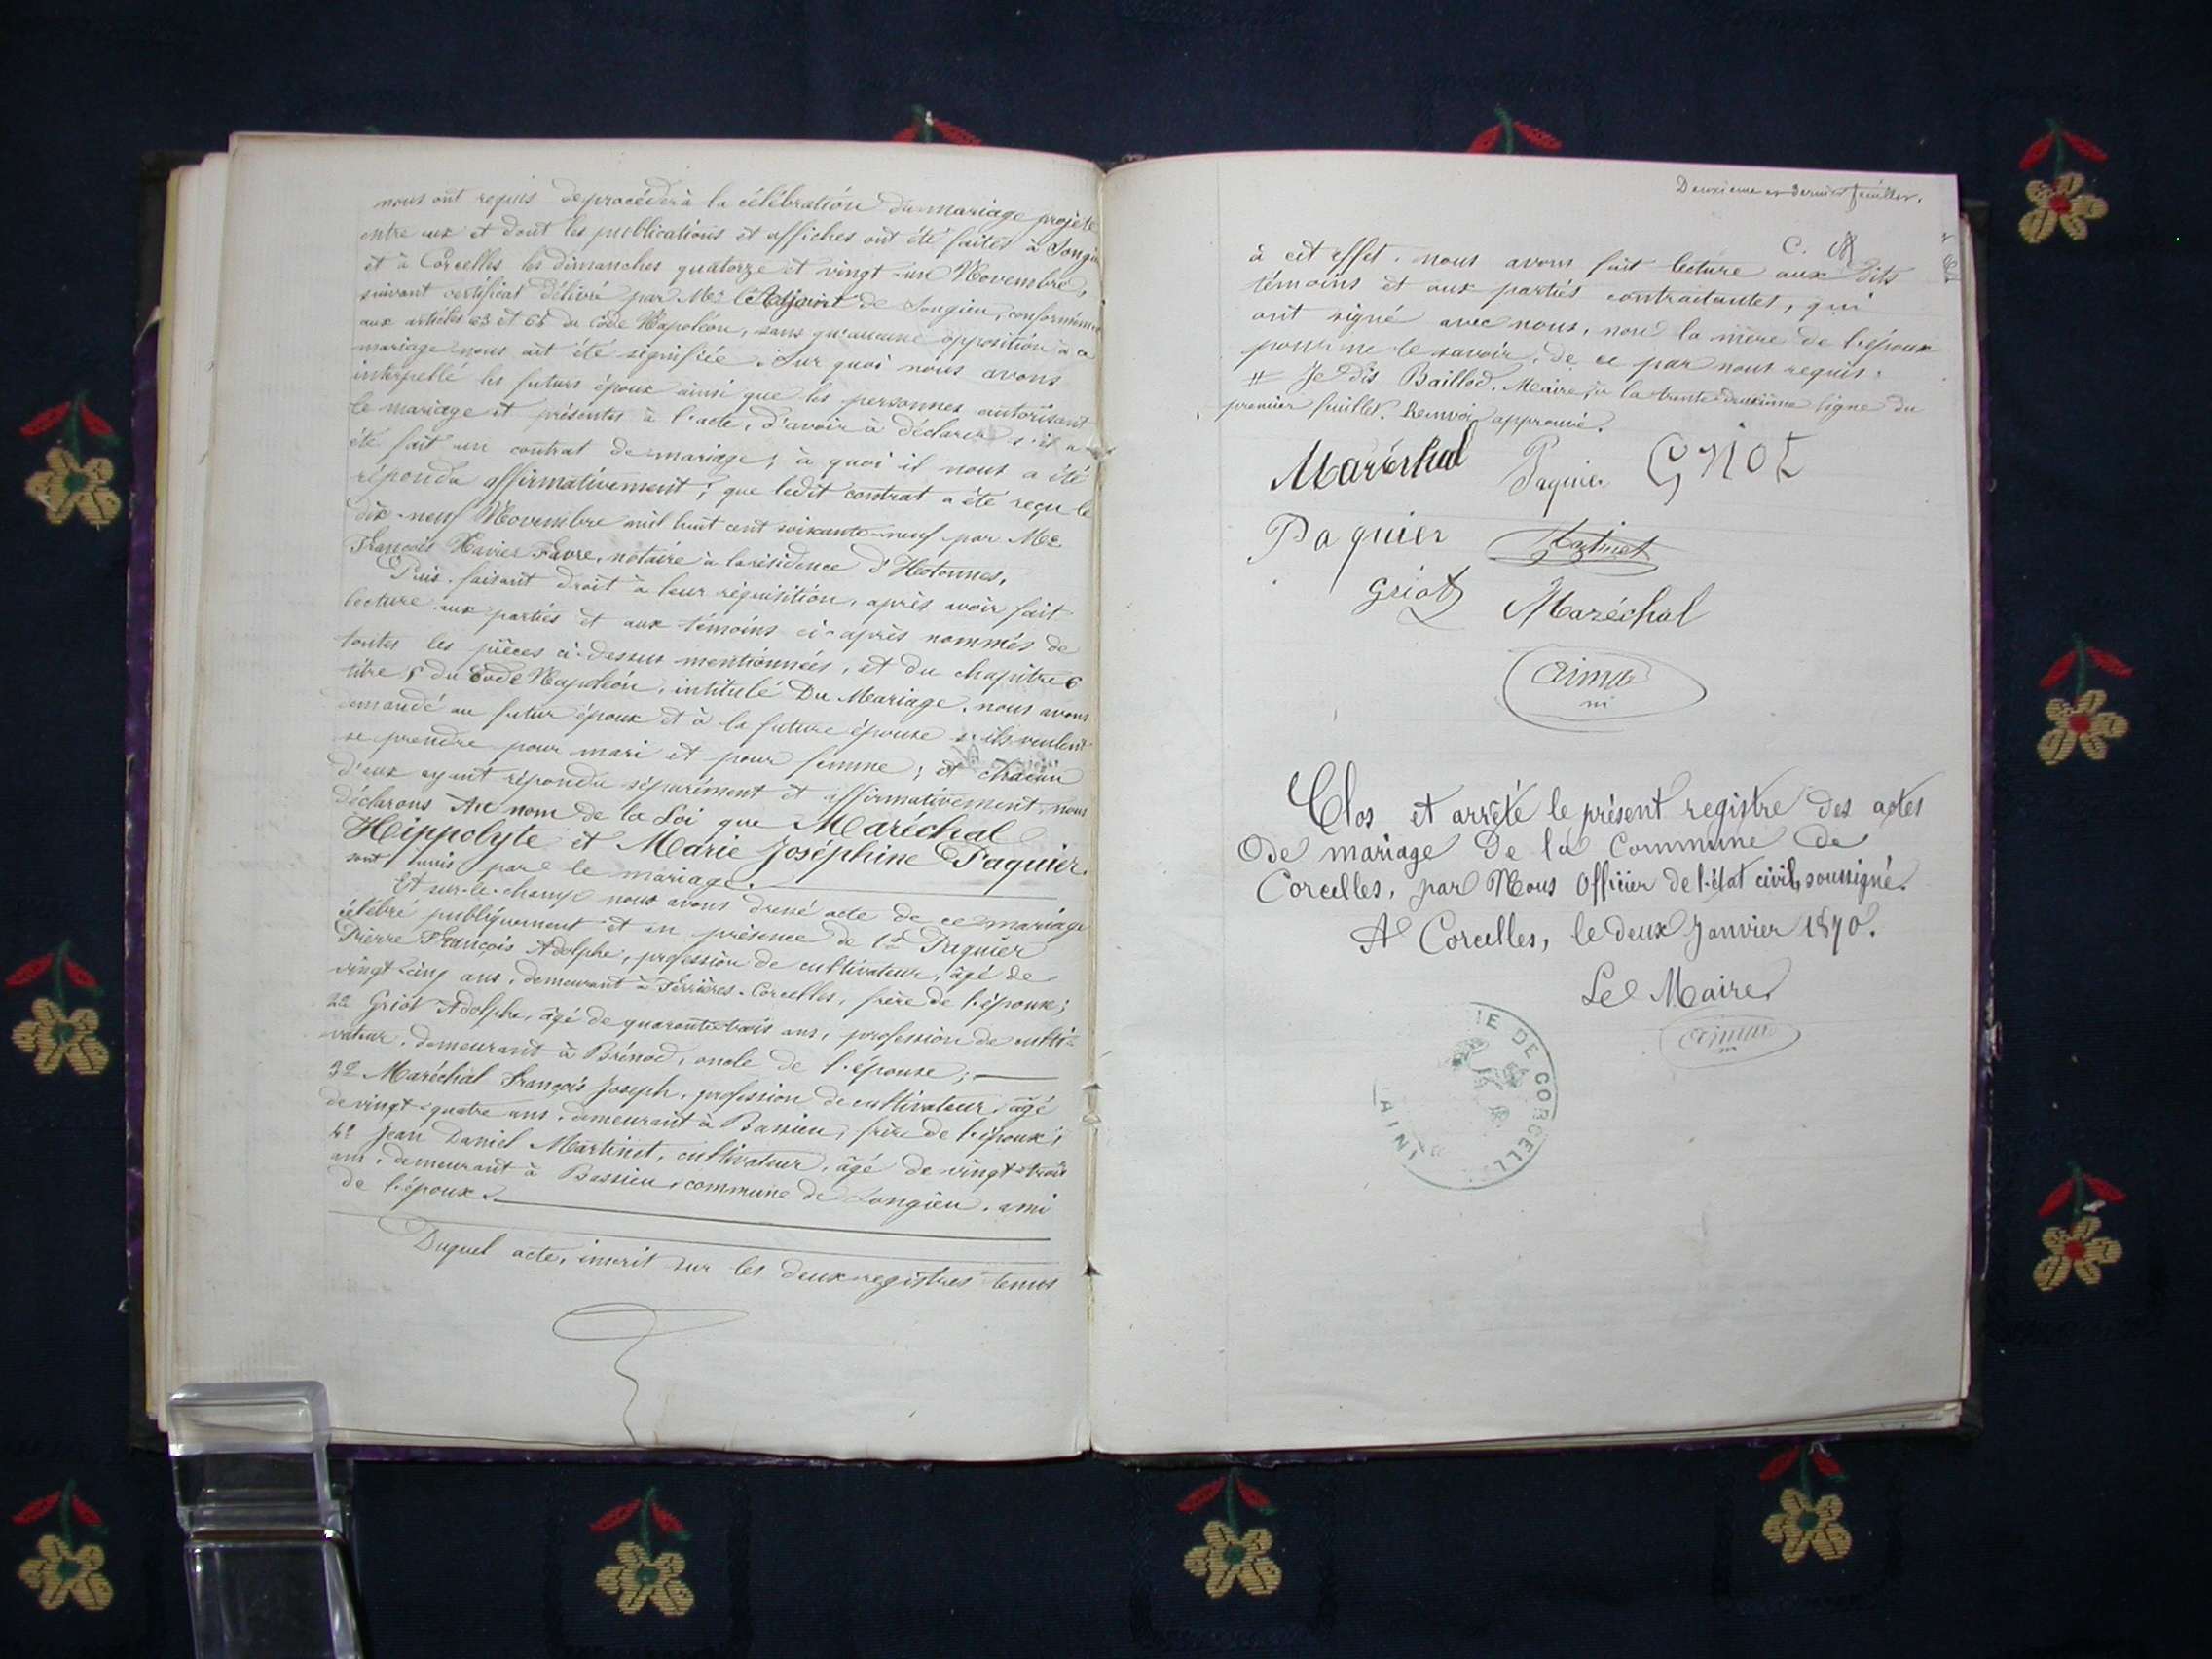 nous ont requis de procéder à la célébration du mariage projeté
entre eux et dont les publications et affiches ont été faites à Songieu
et à Corcelles les dimanches quatorze et vingt-un Novembre,
suivant certificat délivré par Mr l'Adjoint de Songieu, conformément
aux articles 63 et 65 du Code Napoléon, sans qu'aucune opposition à ce
mariage nous ait été signifiée. Sur quoi nous avons
interpellé les futurs époux ainsi que les personnes autorisant
le mariage et présentes à l'acte, d'avoir à déclarer s'il a
été fait un contrat de mariage; à quoi il nous a été
répondu affirmativement; que ledit contrat a été reçu le
dix-neuf Novembre mil huit cent soixante-neuf par Me
François Xavier Favre, notaire à la résidence d'Hotonnes.
Puis, faisant droit à leur réquisition, après avoir fait
lecture aux parties et aux témoins ci-après nommés de
toutes les pièces ci-dessus mentionnées, et du chapitre 6
titre 5 du Code Napoléon, intitulé Du Mariage, nous avons
demandé au futur époux et à la future épouse s'ils veulent
se prendre pour mari et pour femme; et chacun
d'eux ayant répondu séparément et affirmativement, nous
déclarons Au nom de la Loi que Maréchal
Hippolyte et Marie Joséphine Paquier
sont unis par le mariage.
Et sur-le-champ nous avons dressé acte de ce mariage
célébré publiquement et en présence de 1º Paquier
Pierre François Adolphe, profession de cultivateur, âgé de
vingt-cinq ans, demeurant à Ferrières-Corcelles, frère de l'épouse;
2º Griot Adolphe, âgé de quarante-trois ans, profession de culti-
vateur, demeurant à Brénod, oncle de l'épouse;
3º Maréchal François Joseph, profession de cultivateur, âgé
de vingt-quatre ans, demeurant à Bassieu, frère de l'époux;
4º Jean Daniel Martinet, cultivateur, âgé de vingt-trois
ans, demeurant à Bassieu, commune de Songieu, ami
de l'époux.
Duquel acte, inscrit sur les deux registres tenus
Deuxième et dernier feuillet.
C. M
à cet effet, nous avons fait lecture aux dits
témoins et aux parties contractantes, qui
ont signé avec nous, non la mère de l'époux
pour ne le savoir, de ce par nous requis.
# Je dis Baillod, Maire, à la trente-deuxième ligne du
premier feuillet. Renvoi approuvé.
Maréchal Paquier Griot
Paquier Martinet
Griot Maréchal
Clos et arrêté le présent registre des actes
de mariage de la Commune de
Corcelles, par Nous Officier de l'état civil, soussigné.
A Corcelles, le deux Janvier 1870.
Le Maire
IE DE CORCELL
AIN